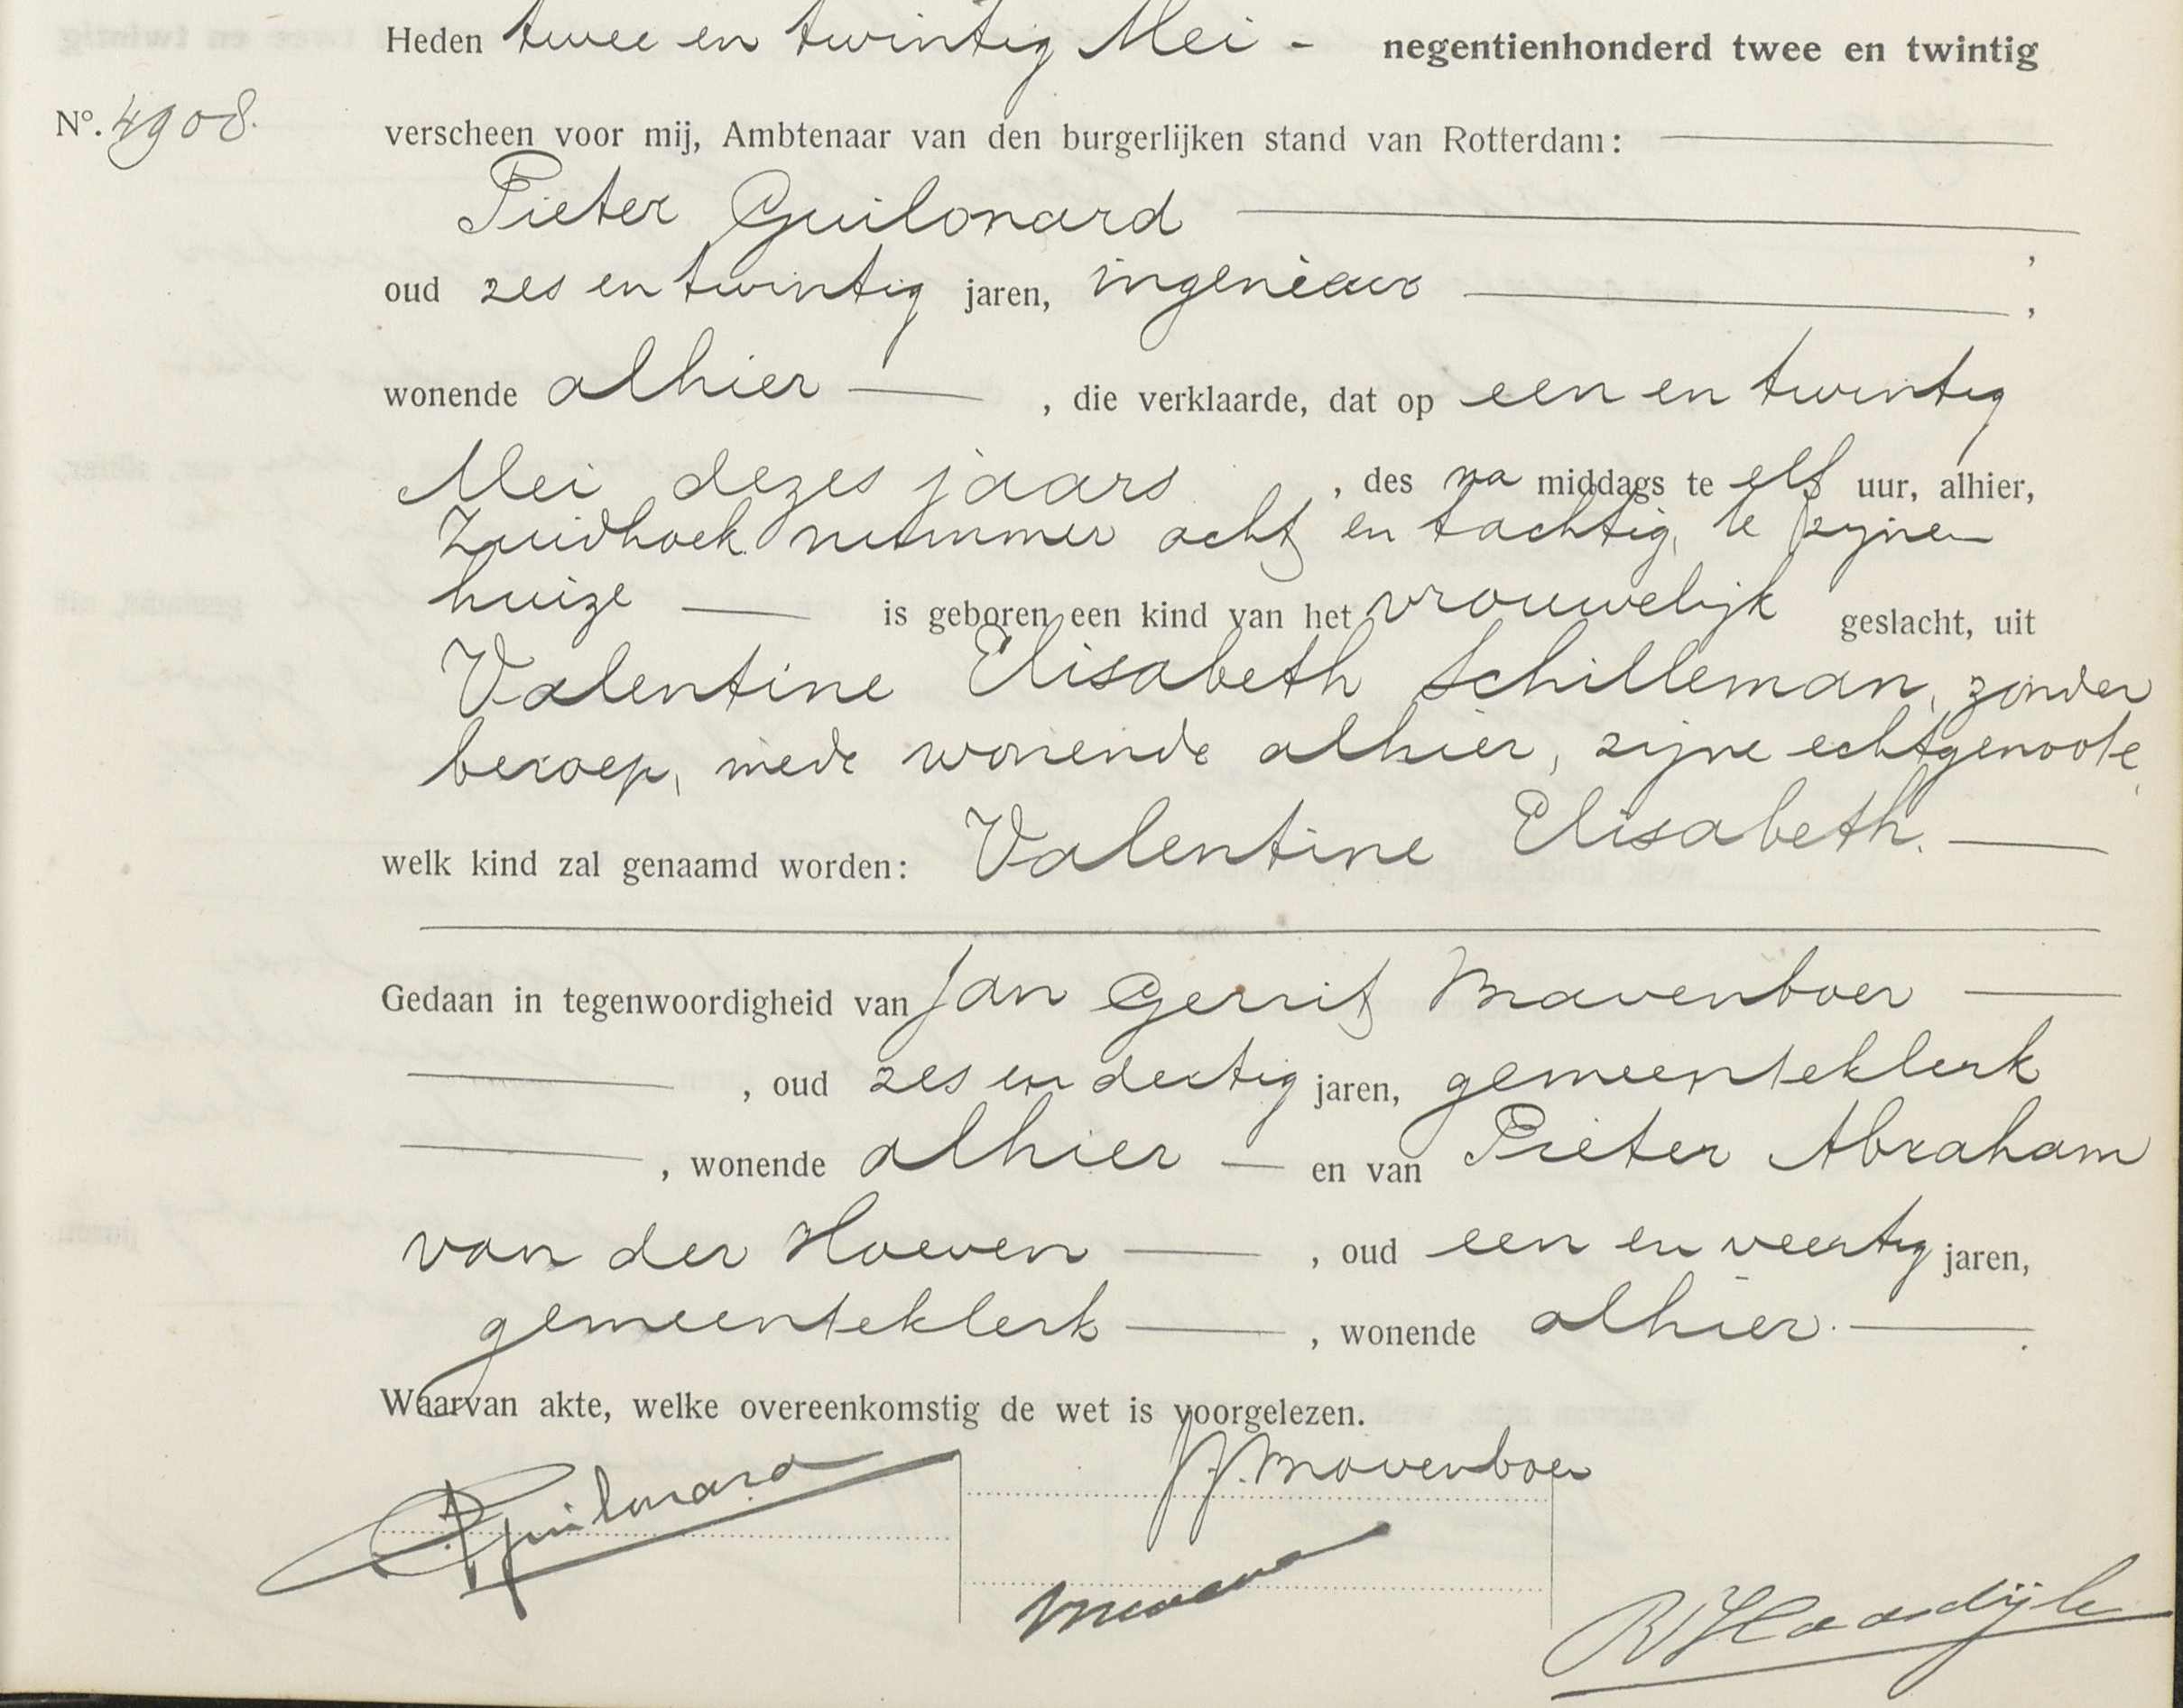 Heden twee en twintig Mei - negentienhonderd twee en twintig
No. 4908.
verscheen voor mij, Ambtenaar van den burgerlijken stand van Rotterdam:
Pieter Guilonard ,
oud zes en twintig jaren, ingenieur ,
wonende alhier , die verklaarde, dat op een en twintig
Mei dezes jaars , des na middags te elf uur, alhier,
Zuidhoek nummer acht en tachtig, te zijnen
huize is geboren een kind van het vrouwelijk geslacht, uit
Valentine Elisabeth Schilleman, zonder
beroep, mede wonende alhier, zijne echtgenoote,
welk kind zal genaamd worden: Valentine Elisabeth.
Gedaan in tegenwoordigheid van Jan Gerrit Mavenboer
, oud zes en dertig jaren, gemeenteklerk
, wonende alhier en van Pieter Abraham
van der Hoeven , oud een en veertig jaren,
gemeenteklerk , wonende alhier.
Waarvan akte, welke overeenkomstig de wet is voorgelezen.
PGuilonard
JG. Mavenboer